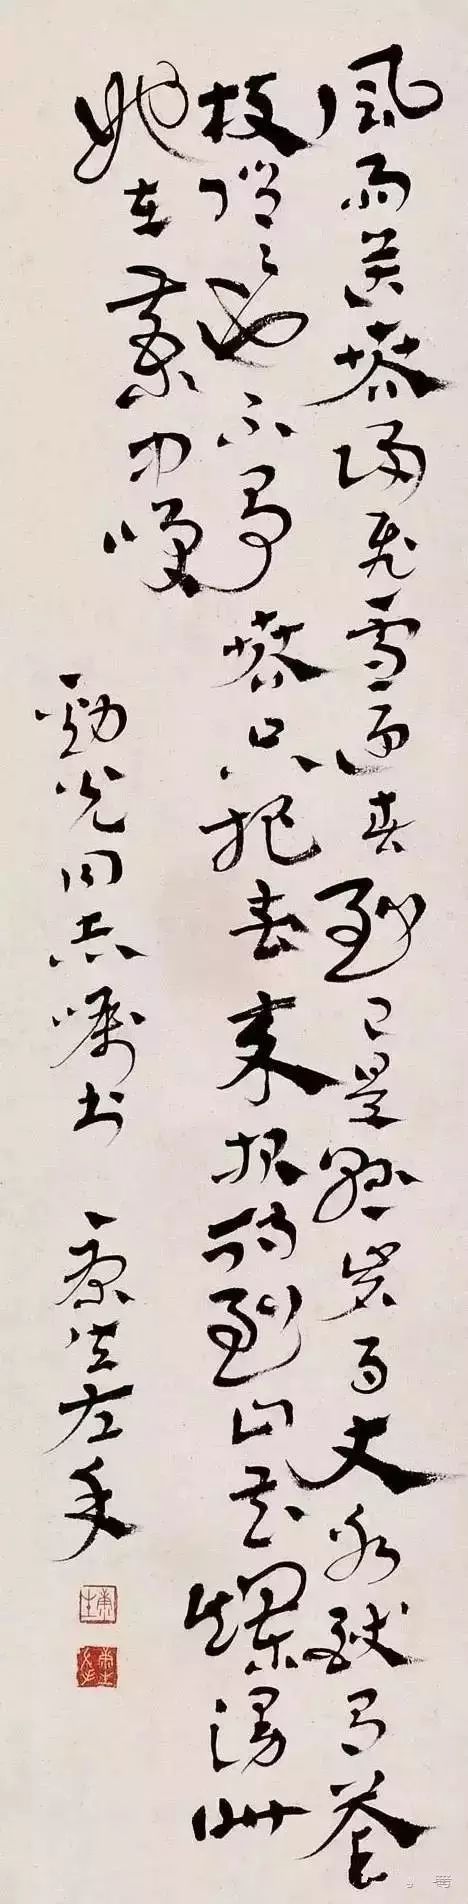 風雨送春歸飛雪迎春到已是懸崖百丈冰猶有花
枝俏々也不爭春只把春來報待到山花爛漫時
她在叢中笑
勁光同志囑書 康生左手
康生